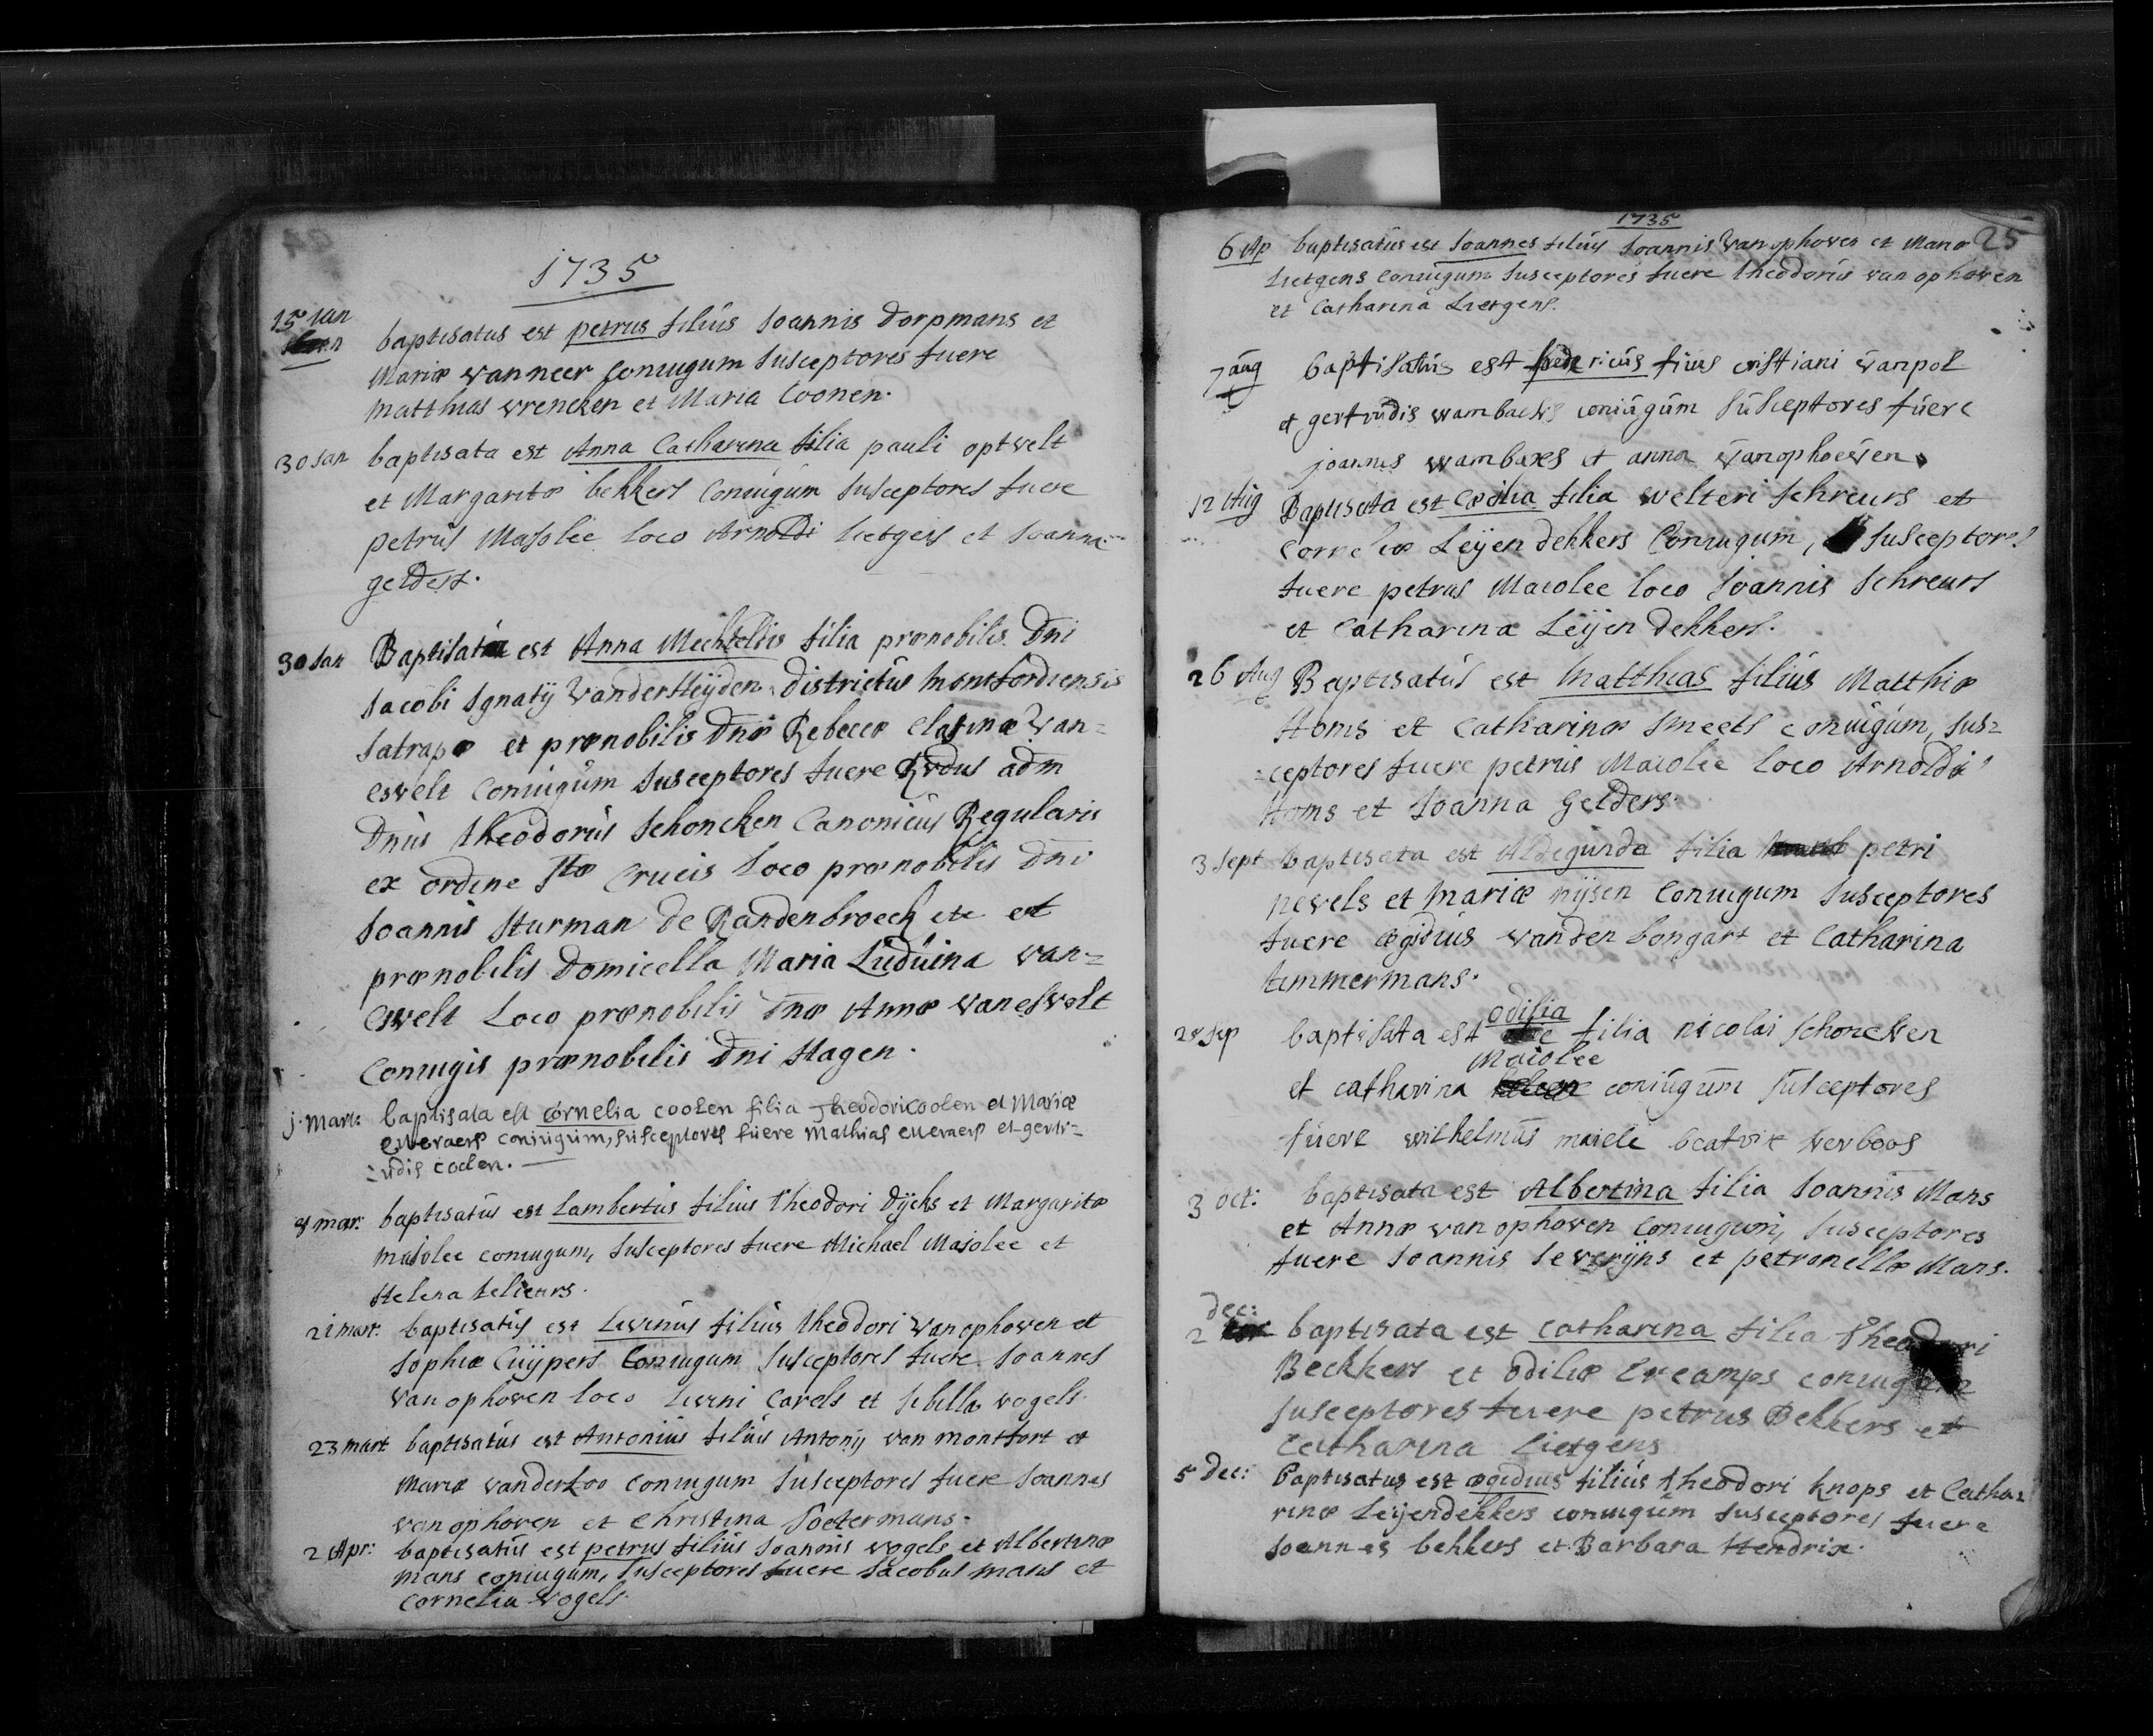 1735
15 Jan
baptisatus est petrus filius Joannis Dorpmans et
Mariæ vanneer Coniugum Susceptores fuere
Matthias vrencken et Maria Coonen.
30 Jan baptisata est Anna Catharina filia pauli optvelt
et Margaritæ bekkers Coniugum Susceptores fuere
petrus Majolee loco Arnoldi lietgens et Joanna
gelders.
30 Jan Baptisata est Anna Mechteldis filia prænobilis Dni
Jacobi Ignatij Vanderheijden Districtus Montfordiensis
Satrapæ et prænobilis Dnæ Rebeccæ Van=
eswelt Coniugum Susceptores fuere Rdus adm
Dnus theodorus Schoncken Canonicus Regularis
ex ordine Stæ Crucis Loco prænobilis Dni
Joannis Sturman de Randenbroeck etc et
prænobilis Domicella Maria Luduina van=
eswelt Loco prænobilis Dnæ Annæ van eswelt
Coniugis prænobilis Dni Hagen.
j. Mart: baptisata est Cornelia coolen filia Theodori coolen et Mariæ
everaers coniugum, susceptores fuere Mathias everaers et gertr=
=udis coolen.
8 mar: baptisatus est Lambertus filius theodori Dijcks et Margaritæ
Majolee coniugum, Susceptores fuere Michael Majolee et
Helena selieurs.
21 mart: baptisatus est Livinus filius theodori van ophoven et
Sophiæ Cuijpers Coniugum Susceptores fuere Joannes
van ophoven loco Livini Carels et Sibilla vogels.
23 mart baptisatus est Antonius filius Antonij van montfort et
Mariæ vanderloo Coniugum Susceptores fuere Joannes
van ophoven et Christina Soetermans.
2 Apr: baptisatus est petrus filius Joannis vogels et Albertinæ
mans coniugum, Susceptores fuere Jacobus mans et
Cornelia vogels.
1735
25
6 Ap baptisatus est Joannes filius Joannis Van ophoven et Mariæ
Lietgens Coniugum Susceptores fuere theodorus van ophoven
et Catharina Lietgens.
7 aug baptisatus est fredericus fiius cristiani vanpol
et gertrudis wambachs coniugum susceptores fuere
joannes wambaxs et anna vanophoeven.
12 Aug Baptisata est Cæcilia filia welteri Schreurs et
Corneliæ Leijendekkers Coniugum, Susceptores
fuere petrus Maiolee loco Joannis Schreurs
et Catharina Leijendekkers.
26 Aug Baptisatus est Matthias filius Matthiæ
Homs et Catharinæ Smeets coniugum, Sus=
=ceptores fuere petrus Maiolee loco Arnoldi
Homs et Joanna Gelders.
3 Sept baptisata est Aldegunda filia petri
nevels et Mariæ nijsen Coniugum Susceptores
fuere ægidius vanden bongart et Catharina
timmermans.
28 sep baptisata est odilia filia nicolai schoncken
et catharina Maiolee coniugum susceptores
fuere wilhelmus maiele beatrix verboos
3 oct: baptisata est Albertina filia Joannis Mans
et Annæ van ophoven Coniugum, Susceptores
fuere Joannis Severijns et petronellæ Mans.
dec:
2 baptisata est Catharina filia theodori
Beckkers et odiliæ Ercamps coniugum
Susceptores fuere petrus Bekkers et
Catharina Lietgens
5 Dec: baptisatus est ægidius filius theodori knops et Catha=
rinæ Leijendekkers coniugum Susceptores fuere
Joannes bekkers et Barbara Hendrix.